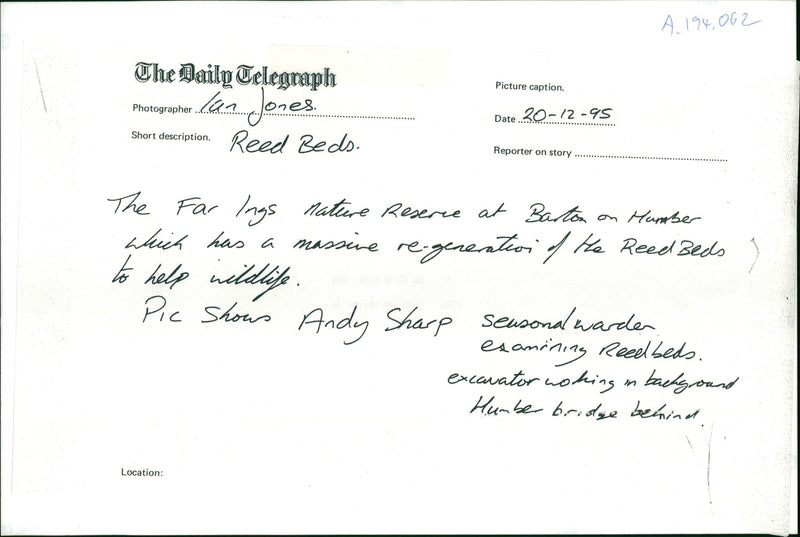 A.194,062
The Daily Telegraph
Photographer Ian Jones.
Short description. Reed Beds.
Picture caption.
Date 20-12-95
Reporter on story
The Far Ings Nature Reserve at Barton on Humber
which has a massive re-generation of the Reed Beds
to help wildlife.
Pic Shows Andy Sharp seasonal warden
examining Reedbeds.
excavator working in background
Humber bridge behind.
Location: